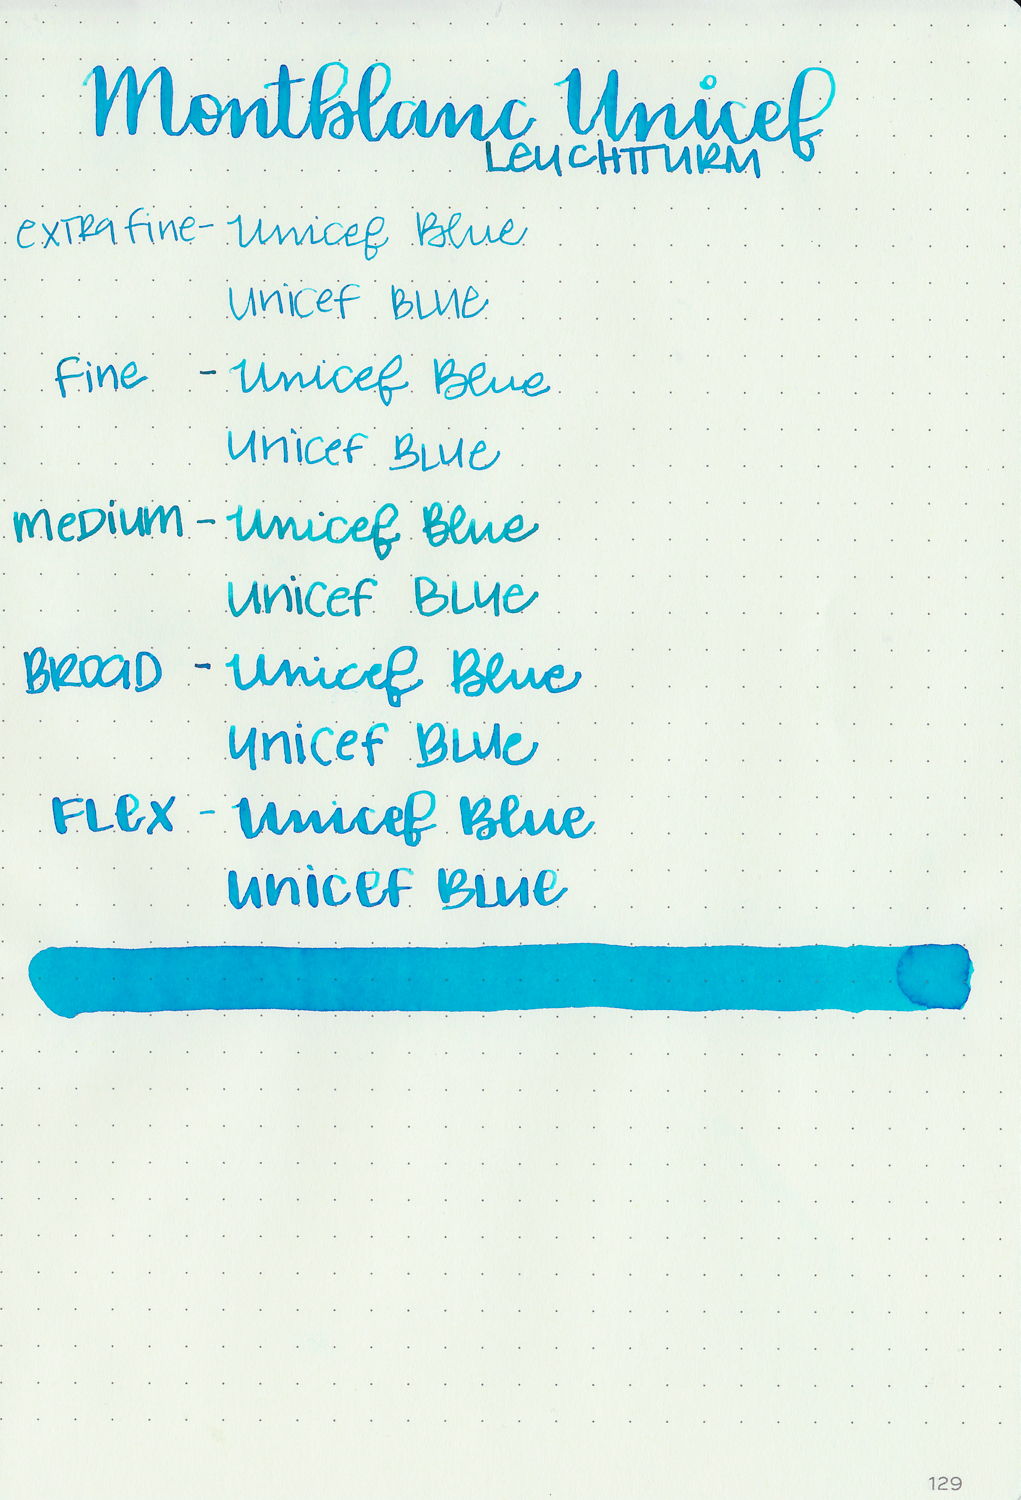 Montblanc Unicef
LEUCHTTURM
extra fine - Unicef Blue
Unicef Blue
Fine - Unicef Blue
Unicef Blue
Medium - Unicef Blue
Unicef Blue
Broad - Unicef Blue
Unicef Blue
Flex - Unicef Blue
Unicef Blue
129